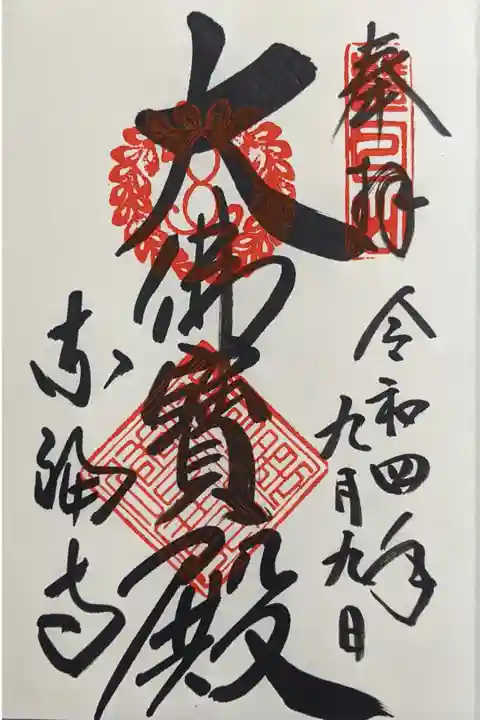 奉拝
令和四年
九月九日
大佛寶殿
寺